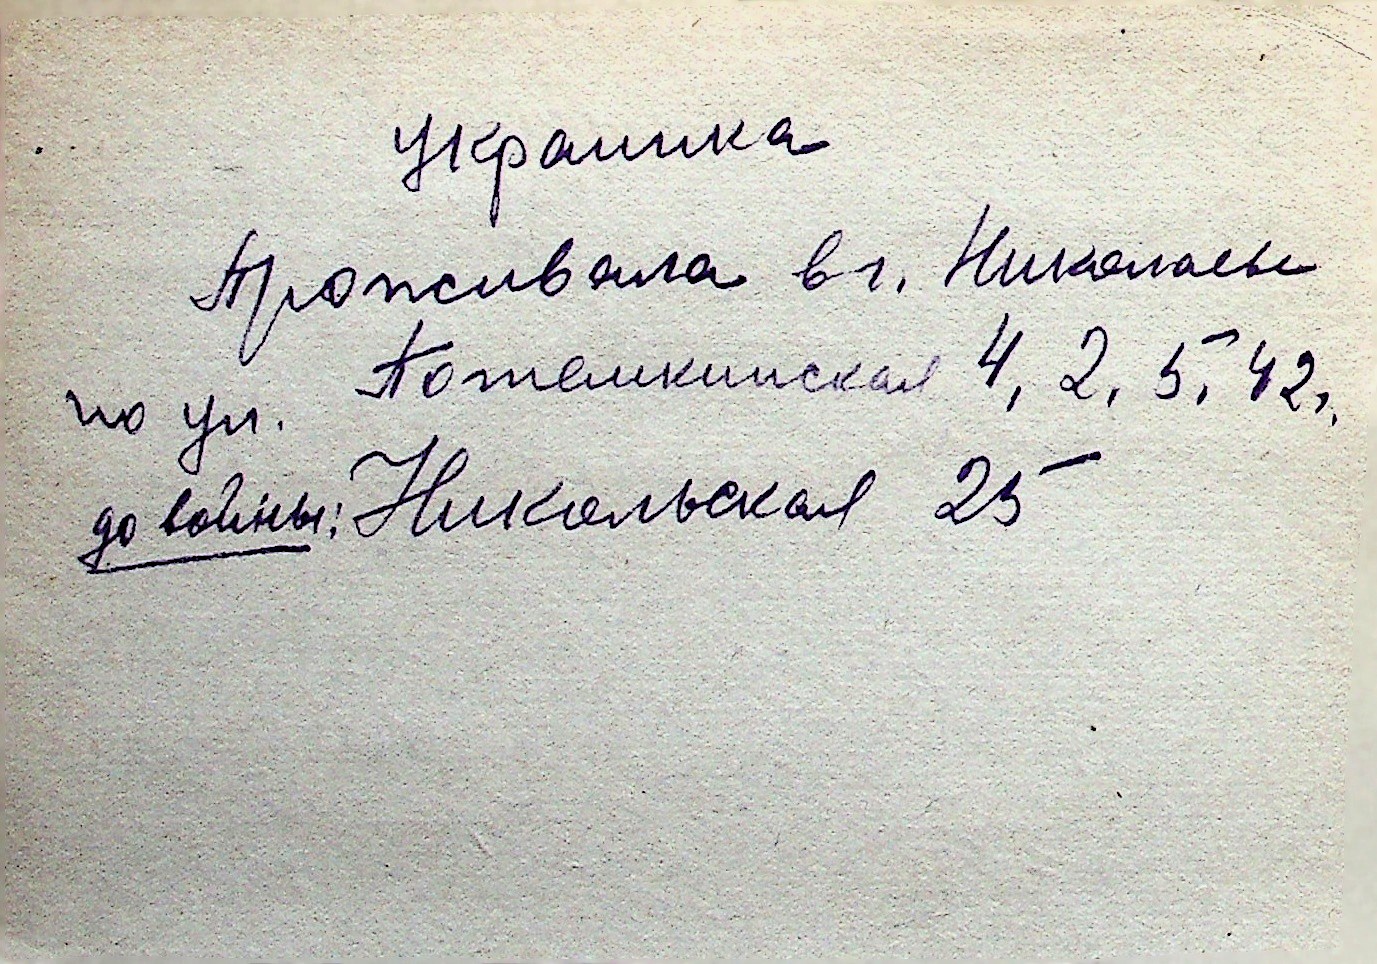 Украинка
Проживала в г. Николаеве
по ул. Потемкинская 4, 2, 5, 42 г.
до войны: Никольская 25